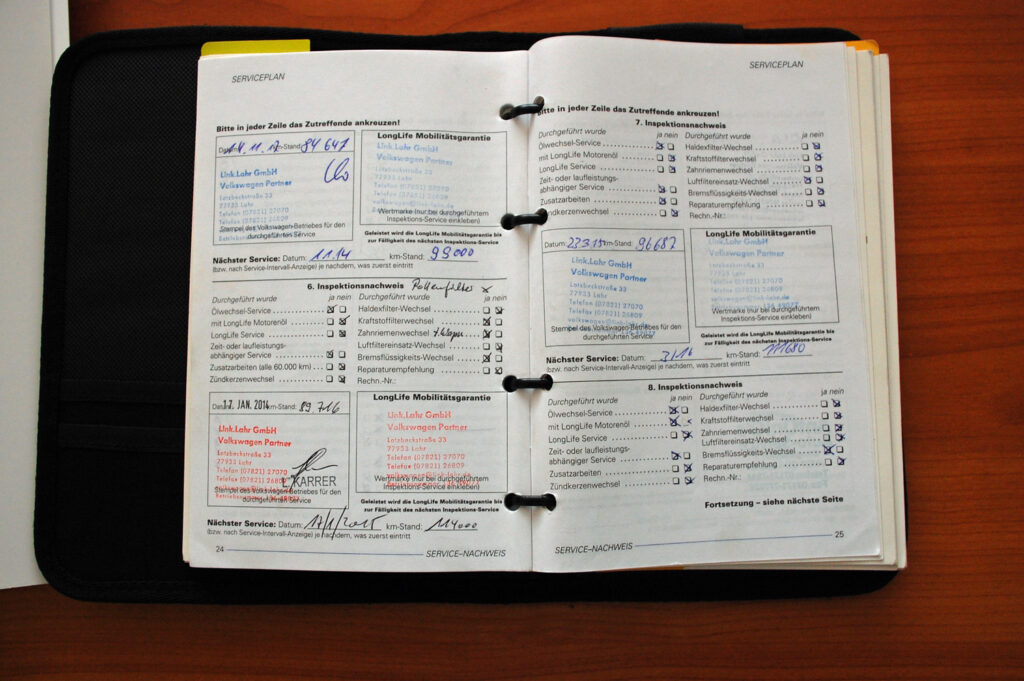 SERVICEPLAN
Bitte in jeder Zeile das Zutreffende ankreuzen!
Datum: 14.11.12 km-Stand: 84 647
Link.Lahr GmbH
Volkswagen Partner
Lotzbeckstraße 33
77933 Lahr
Telefon (07821) 27070
Stempel des Volkswagen-Betriebes für den
durchgeführten Service
LongLife Mobilitätsgarantie
Link.Lahr GmbH
Volkswagen Partner
Lotzbeckstraße 33
77933 Lahr
Wertmarke (nur bei durchgeführtem
Inspektions-Service einkleben)
Geleistet wird die LongLife Mobilitätsgarantie bis
zur Fälligkeit des nächsten Inspektions-Service
Nächster Service: Datum: 11.14 km-Stand: 99000
(bzw. nach Service-Intervall-Anzeige) je nachdem, was zuerst eintritt
6. Inspektionsnachweis Pollenfilter x
Durchgeführt wurde ja nein
Ölwechsel-Service
mit LongLife Motorenöl
LongLife Service
Zeit- oder laufleistungs-
abhängiger Service
Zusatzarbeiten (alle 60.000 km)
Zündkerzenwechsel
Durchgeführt wurde ja nein
Haldexfilter-Wechsel
Kraftstofffilterwechsel
Zahnriemenwechsel
Luftfiltereinsatz-Wechsel
Bremsflüssigkeits-Wechsel
Reparaturempfehlung
Rechn.-Nr.:
Datum: 17. JAN. 2014 km-Stand: 89 716
Link.Lahr GmbH
Volkswagen Partner
Lotzbeckstraße 33
77933 Lahr
Telefon (07821) 27070
Telefax (07821) 26809
KARRER
Stempel des Volkswagen-Betriebes für den
durchgeführten Service
LongLife Mobilitätsgarantie
Link.Lahr GmbH
Volkswagen Partner
Lotzbeckstraße 33
77933 Lahr
Telefon (07821) 27070
Telefax (07821) 26809
Wertmarke (nur bei durchgeführtem
Inspektions-Service einkleben)
Geleistet wird die LongLife Mobilitätsgarantie bis
zur Fälligkeit des nächsten Inspektions-Service
Nächster Service: Datum: 17/1/2015 km-Stand: 114000
(bzw. nach Service-Intervall-Anzeige) je nachdem, was zuerst eintritt
24 SERVICE–NACHWEIS
SERVICEPLAN
Bitte in jeder Zeile das Zutreffende ankreuzen!
7. Inspektionsnachweis
Durchgeführt wurde ja nein
Ölwechsel-Service
mit LongLife Motorenöl
LongLife Service
Zeit- oder laufleistungs-
abhängiger Service
Zusatzarbeiten
Zündkerzenwechsel
Durchgeführt wurde ja nein
Haldexfilter-Wechsel
Kraftstofffilterwechsel
Zahnriemenwechsel
Luftfiltereinsatz-Wechsel
Bremsflüssigkeits-Wechsel
Reparaturempfehlung
Rechn.-Nr.:
Datum: 23.3.15 km-Stand: 96687
Link.Lahr GmbH
Volkswagen Partner
Lotzbeckstraße 33
77933 Lahr
Telefon (07821) 27070
Telefax (07821) 26809
Stempel des Volkswagen-Betriebes für den
durchgeführten Service
LongLife Mobilitätsgarantie
Link.Lahr GmbH
Volkswagen Partner
Lotzbeckstraße 33
77933 Lahr
Wertmarke (nur bei durchgeführtem
Inspektions-Service einkleben)
Geleistet wird die LongLife Mobilitätsgarantie bis
zur Fälligkeit des nächsten Inspektions-Service
Nächster Service: Datum: 3/16 km-Stand: 111680
(bzw. nach Service-Intervall-Anzeige) je nachdem, was zuerst eintritt
8. Inspektionsnachweis
Durchgeführt wurde ja nein
Ölwechsel-Service
mit LongLife Motorenöl
LongLife Service
Zeit- oder laufleistungs-
abhängiger Service
Zusatzarbeiten
Zündkerzenwechsel
Durchgeführt wurde ja nein
Haldexfilter-Wechsel
Kraftstofffilterwechsel
Zahnriemenwechsel
Luftfiltereinsatz-Wechsel
Bremsflüssigkeits-Wechsel
Reparaturempfehlung
Rechn.-Nr.:
Fortsetzung – siehe nächste Seite
SERVICE–NACHWEIS 25